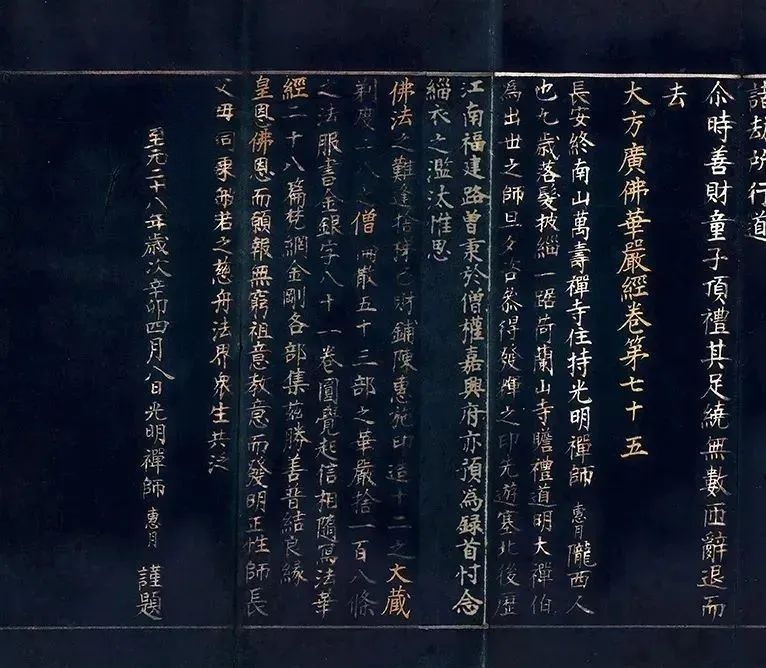 諸劫所行道
尒時善財童子頂禮其足繞無數帀辭退而
去
大方廣佛華嚴經卷第七十五
長安終南山萬壽禪寺住持光明禪師惠月隴西人
也九歲落髮披緇一踞荷蘭山寺瞻禮道明大禪伯
爲出世之師旦夕咨叅得發輝之印先遊塞北後歷
江南福建路曾秉於僧權嘉興府亦預為録首忖念
緇衣之濫汰惟思
佛法之難逢捨梯己財鋪陳惠施印造十二之大藏
剃度二八之僧 散五十三部之華嚴捨一百八條
之法服書金銀字八十一卷圓覺起信相隨寫法華
經二十八篇梵網金剛各部集茲勝善普結良緣
皇恩佛恩而願報無窮祖意教意而發明正性師長
父母同乘般若之慈舟法界眾生共泛
至元二十八年歲次辛卯四月八日光明禪師惠月謹題